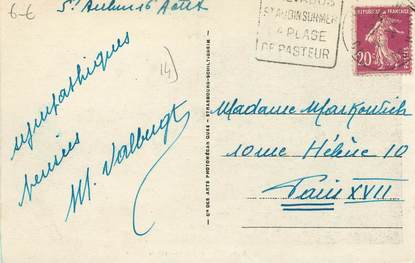 6-6
St Aubin 16 Août
14)
sympathiques
pensées
M. Valbengt
ST AUBIN SUR MER
LA PLAGE
DE PASTEUR
REPUBLIQUE FRANÇAISE
20c
Cie DES ARTS PHOTOMÉCANIQUES - STRASBOURG-SCHILTIGHEIM
Madame Markovitch
10 rue Hélène 10
Paris XVII